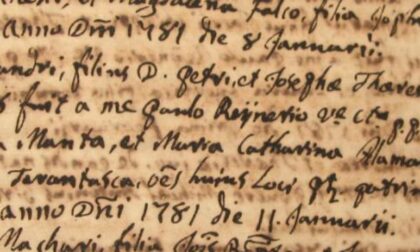 et Magdalena Falco, filia Jo
Anno Dñi 1781 die 8 Januarii.
andri, filius D. petri, et Josephæ
fuit a me paulo Reynerio vᵉ ctᵃ p.p.
Manta, et Maria Catharina Alama
Tarantasca, oēs huius Loci patri
anno Dñi 1781 die 11 Januarii.
filia